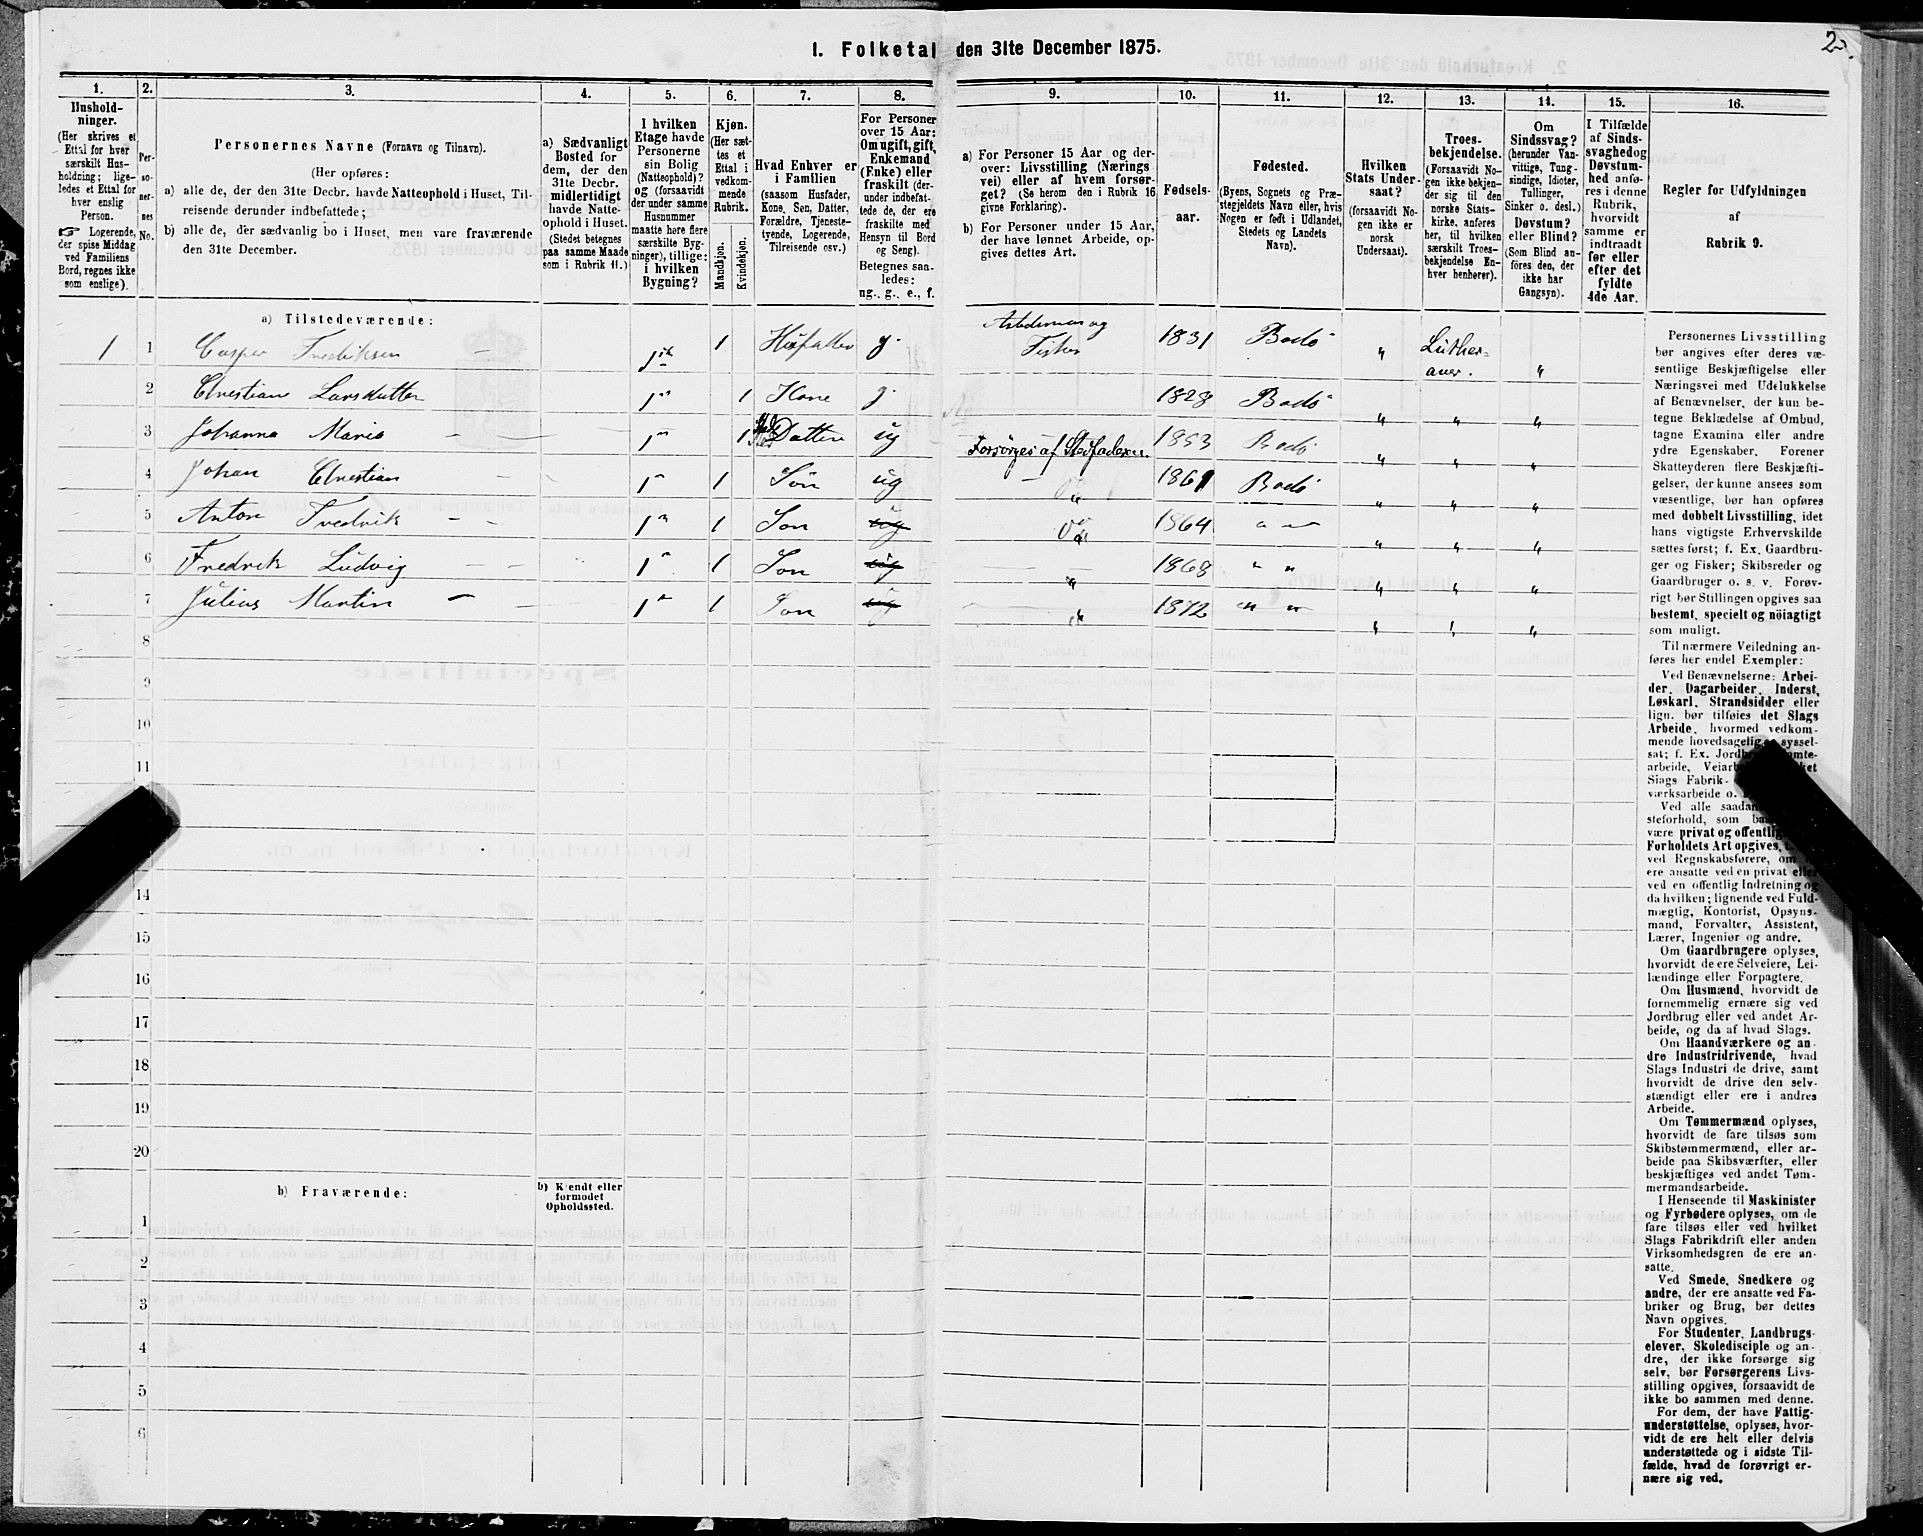 I. Folketal den 31te December 1875.
2.
1.
2.
3.
4.
5.
6.
7.
8.
9.
10.
11.
12.
13.
14.
15.
16.
Hushold-
ninger.
(Her skrives et
Ettal for hver
særskilt Hus-
holdning; lige-
ledes et Ettal for
hver enslig
Person.
☞ Logerende,
der spise Middag
ved Familiens
Bord, regnes ikke
som enslige).
Per-
so-
ner-
nes
No.
Personernes Navne (Fornavn og Tilnavn).
(Her opføres:
a) alle de, der den 31te Decbr. havde Natteophold i Huset, Til-
reisende derunder indbefattede;
b) alle de, der sædvanlig bo i Huset, men vare fraværende
den 31te December.
a) Sædvanligt
Bosted for
dem, der den
31te Decbr.
midlertidigt
havde Natte-
ophold i Huset.
(Stedet betegnes
paa samme Maade
som i Rubrik 11.)
I hvilken
Etage havde
Personerne
sin Bolig
(Natteophold)?
og (forsaavidt
der under samme
Husnummer
maatte høre flere
særskilte Byg-
ninger), tillige:
i hvilken
Bygning?
Kjøn.
(Her sæt-
tes et
Ettal i
vedkom-
mende
Rubrik.
Mandkjøn.
Kvindekjøn.
Hvad Enhver er
i Familien
(saasom Husfader,
Kone, Søn, Datter,
Forældre, Tjeneste-
tyende, Logerende,
Tilreisende osv.)
For Personer
over 15 Aar:
Om ugift, gift,
Enkemand
(Enke) eller
fraskilt (der-
under indbefat-
tede de, der ere
fraskilte med
Hensyn til Bord
og Seng).
Betegnes saa-
ledes:
ug., g., e., f.
a) For Personer 15 Aar og der-
over: Livsstilling (Nærings
vei) eller af hvem forsør-
get? (Se herom den i Rubrik 16
givne Forklaring).
b) For Personer under 15 Aar,
der have lønnet Arbeide, op-
gives dettes Art.
Fødsels-
aar.
Fødested.
(Byens, Sognets og Præ-
stegjeldets Navn eller, hvis
Nogen er født i Udlandet,
Stedets og Landets
Navn).
Hvilken
Stats Under-
saat?
(forsaavidt No-
gen ikke er
norsk
Undersaat).
Troes-
bekjendelse.
(Forsaavidt No-
gen ikke bekjen-
der sig til den
norske Stats-
kirke, anføres
her, til hvilken
særskilt Troes-
bekjendelse En-
hver henhører).
Om
Sindssvag?
(herunder Van-
vittige, Tung-
sindige, Idioter,
Tullinger,
Sinker o. desl.)
Døvstum?
eller Blind?
(Som Blind an-
føres den, der
ikke har
Gangsyn).
I Tilfælde
af Sinds-
svaghed og
Døvstum-
hed anfø-
res i denne
Rubrik,
hvorvidt
samme er
indtraadt
før eller
efter det
fyldte
4de Aar.
Regler for Udfyldningen
af
Rubrik 9.
a) Tilstedeværende:
1 1 Casper Fredriksen 1 g. Arbdsman og Fisker 1831 Bodø " Luther-aner. "
2 Christian Larsdatter 1 Kone g. 1828 Bodø " " "
3 Johanna Maria 1 Datter ug Forsørges af Stedfaderen. 1853 Bodø " " "
4 Johan Christian 1 Søn ug " 1861 Bodø " " "
5 Anton Fredrik 1 Søn ug 1864 " " " " "
6 Fredrik Ludvig 1 Søn ug " 1868 " " " " "
7 Julius Martin 1 Søn ug " 1872 " " " " "
8
9
10
11
14
15
16
17
18
19
20
b) Fraværende:
b) Kjendt eller
formodet
Opholdssted.
1
2
3
4
5
6
Personernes Livsstilling
bør angives efter deres væ-
sentlige Beskjæftigelse eller
Næringsvei med Udelukkelse
af Benævnelser, der kun be-
tegne Beklædelse af Ombud,
tagne Examina eller andre
ydre Egenskaber. Forener
Skatteyderen flere Beskjæfti-
gelser, der kunne ansees som
væsentlige, bør han opføres
med dobbelt Livsstilling, idet
hans vigtigste Erhvervskilde
sættes først; f. Ex. Gaardbru-
ger og Fisker; Skibsreder og
Gaardbruger o. s. v. Forøv-
rigt bør Stillingen opgives saa
bestemt, specielt og nøiagtigt
som muligt.
Til nærmere Veiledning an-
føres her endel Exempler:
Ved Benævnelserne: Arbei-
der, Dagarbeider, Inderst,
Løskarl, Strandsidder eller
lign. bør tilføies det Slags
Arbeide, hvormed vedkom-
mende hovedsagelig syssel-
sat; f. Ex.
arbeide,
Slags Fabrik-
værksarbeide o.
Ved alle
steforhold, som
være privat og
Forholdets Art opgives,
ved Regnskabsførere, om
ere ansatte ved en privat eller
ved en offentlig Indretning og
da hvilken; lignende ved Fuld-
mægtig, Kontorist, Opsyns-
mand, Forvalter, Assistent,
Lærer, Ingeniør og andre.
Om Gaardbrugere oplyses,
hvorvidt de ere Selveiere, Lei-
lændinge eller Forpagtere.
Om Husmænd, hvorvidt de
fornemmelig ernære sig ved
Jordbrug eller ved andet Ar-
beide, og da af hvad Slags.
Om Haandværkere og an-
dre Industridrivende, hvad
Slags Industri de drive, samt
hvorvidt de drive den selv-
stændigt eller ere i andres
Arbeide.
Om Tømmermænd oplyses,
hvorvidt de fare tilsøs som
Skibstømmermænd, eller ar-
beide paa Skibsværfter, eller
beskjæftiges ved andet Tøm-
mermandsarbeide.
I Henseende til Maskinister
og Fyrbødere oplyses, om de
fare tilsøs eller ved hvilket
Slags Fabrikdrift eller anden
Virksomhedsgren de ere an-
satte.
Ved Smede, Snedkere og
andre, der ere ansatte ved Fa-
briker og Brug, bør dettes
Navn opgives.
For Studenter, Landbrugs-
elever, Skoledisciple og an-
dre, der ikke forsørge sig
selv, bør Forsørgerens Livs-
stilling opgives, forsaavidt de
ikke bo sammen med denne.
For dem, der have Fattig-
understøttelse, oplyses, hvor-
vidt de ere helt eller delvis
understøttede og i sidste Til-
fælde, hvad de forøvrigt er-
nære sig ved.